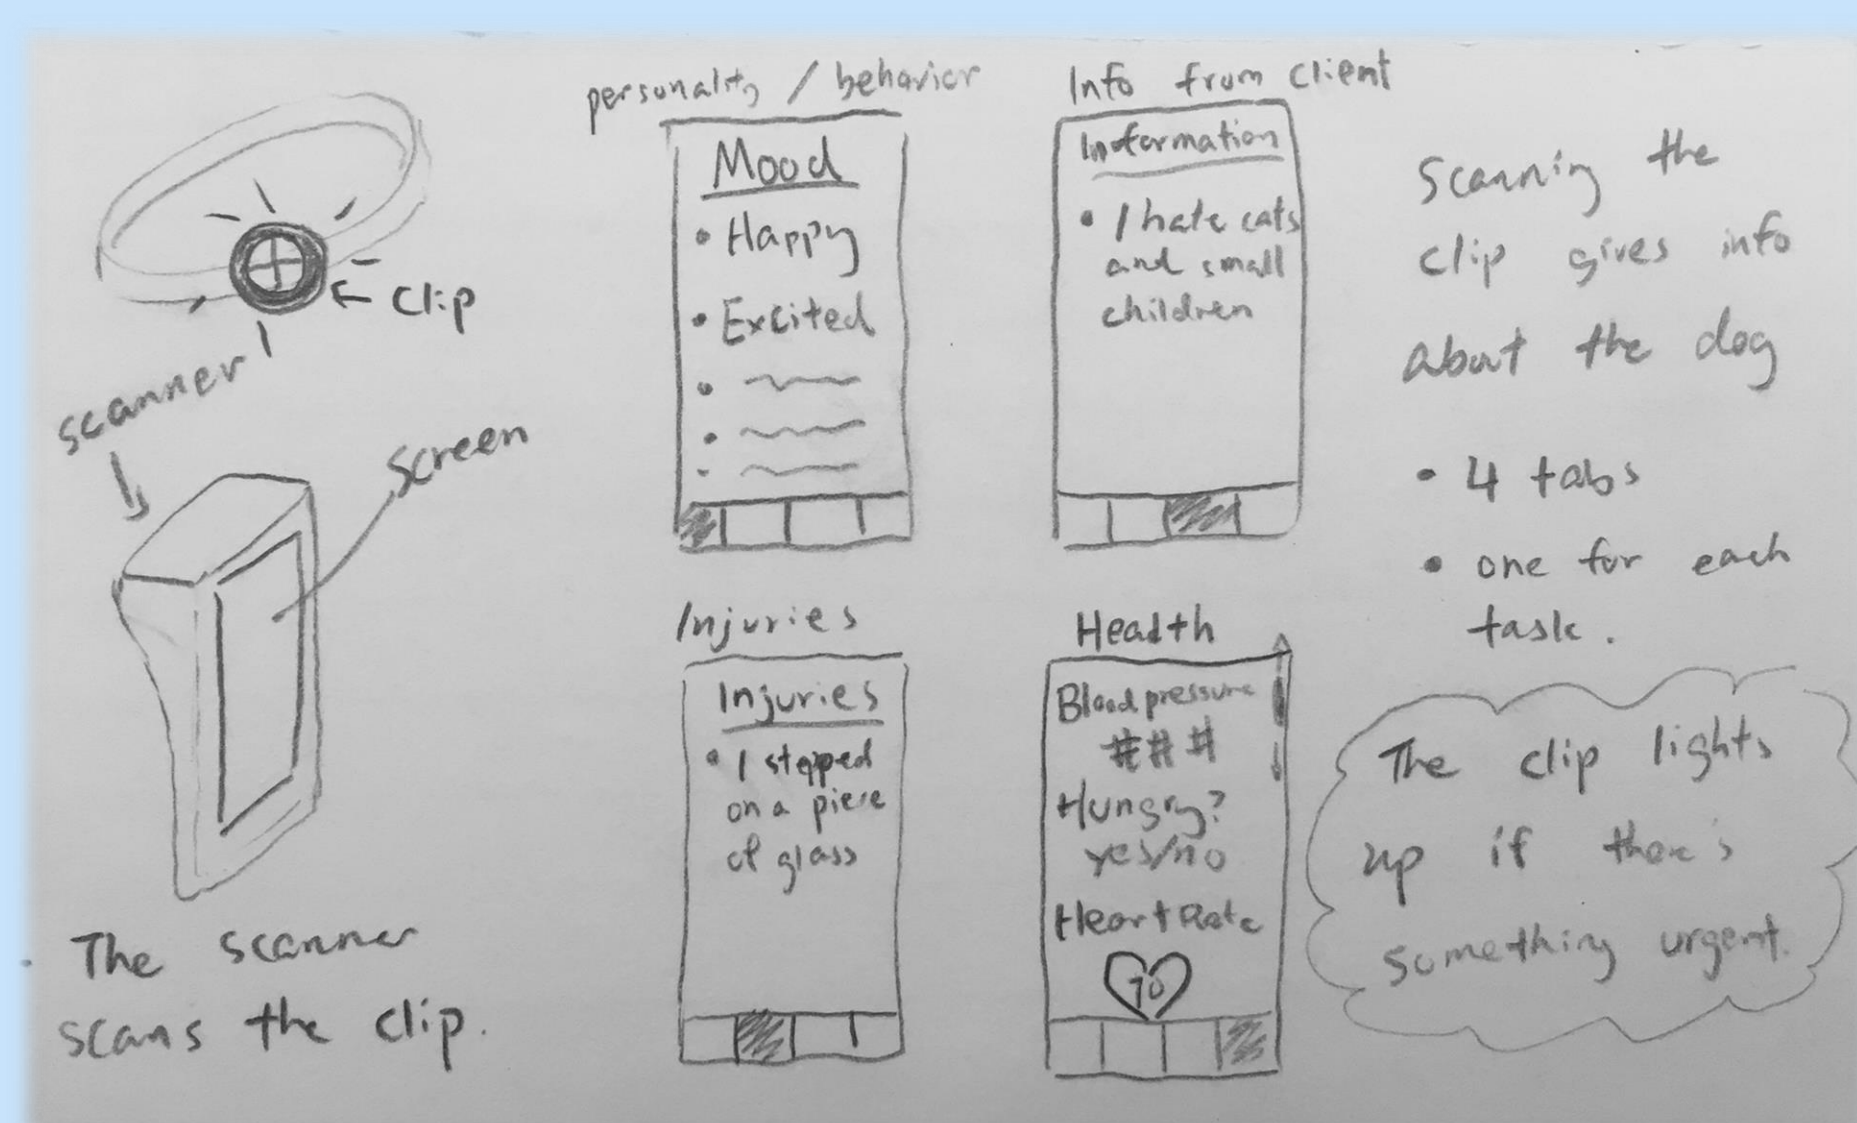 ← Clip
scanner
screen
The scanner
scans the clip.
personality / behavior
Mood
• Happy
• Excited
Info from client
Information
• I hate cats
and small
children
Injuries
Injuries
• I stepped
on a piece
of glass
Health
Blood pressure
###
Hungry?
yes/no
Heart Rate
70
Scanning the
clip gives info
about the dog
• 4 tabs
• one for each
task.
The clip lights
up if there's
something urgent.